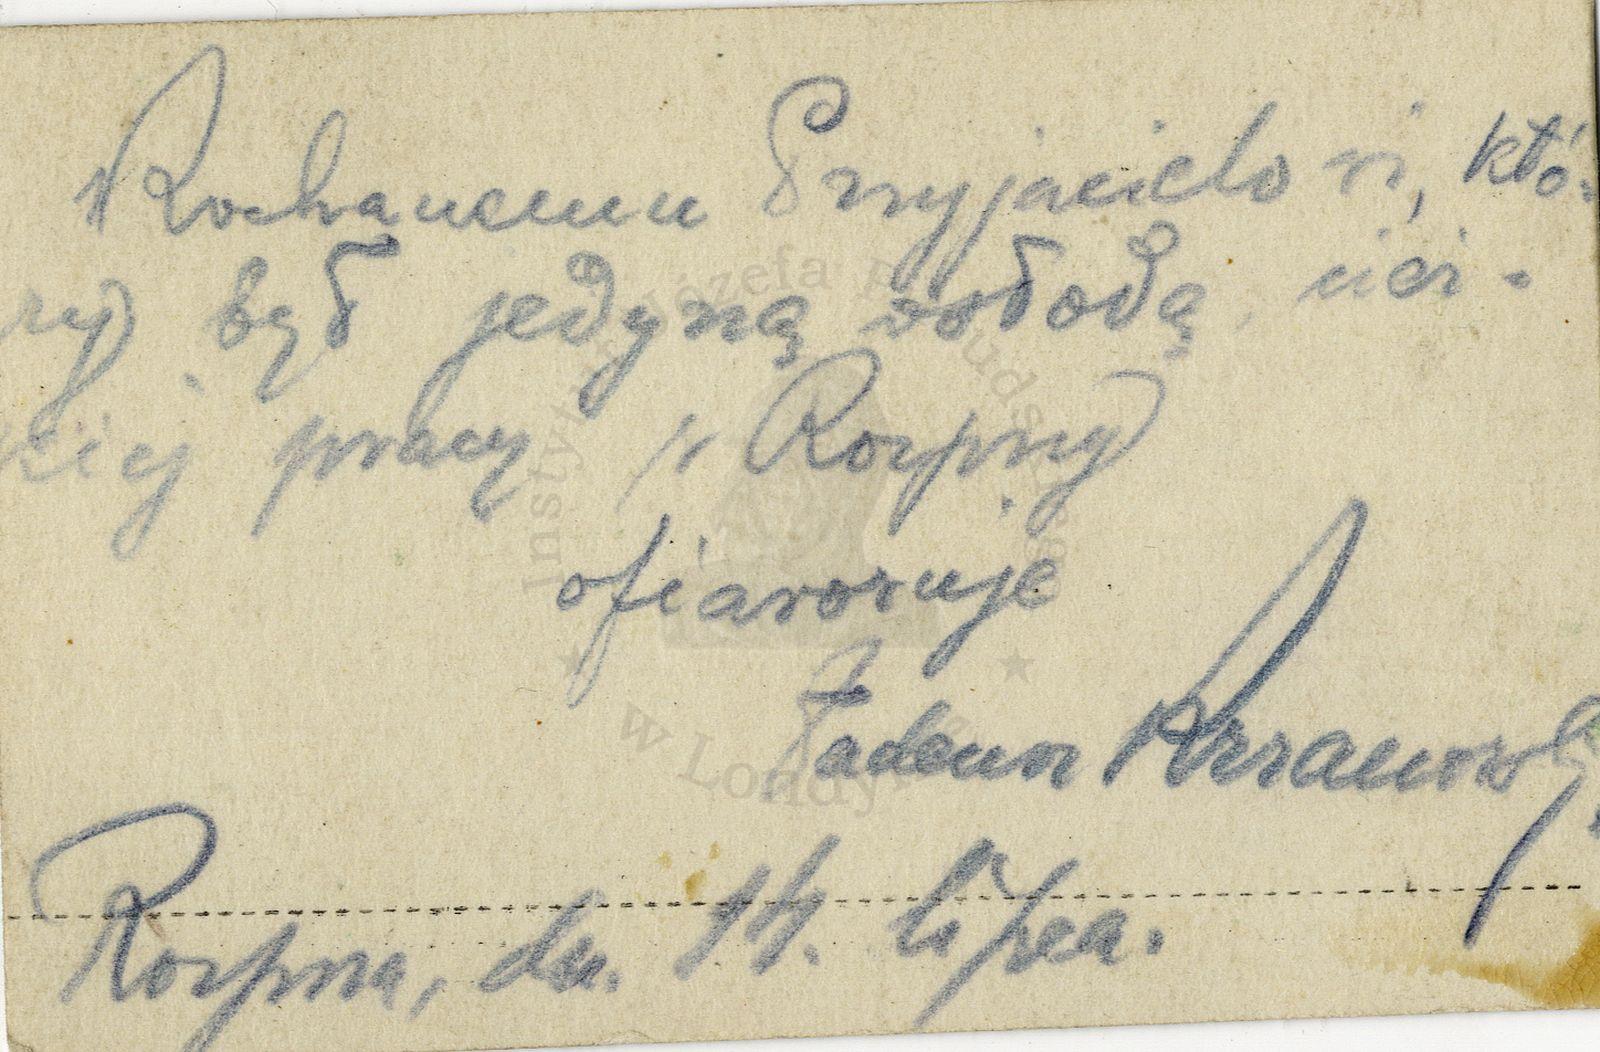 Kochanemu Przyjacielowi, któ-
ry był jedyną osłodą, cięż-
kiej pracy w Rozprzy
ofiaruje
Tadeusz
Rozprza, dn. 14. lipca.
Instytut Józefa Piłsudskiego
w Londynie